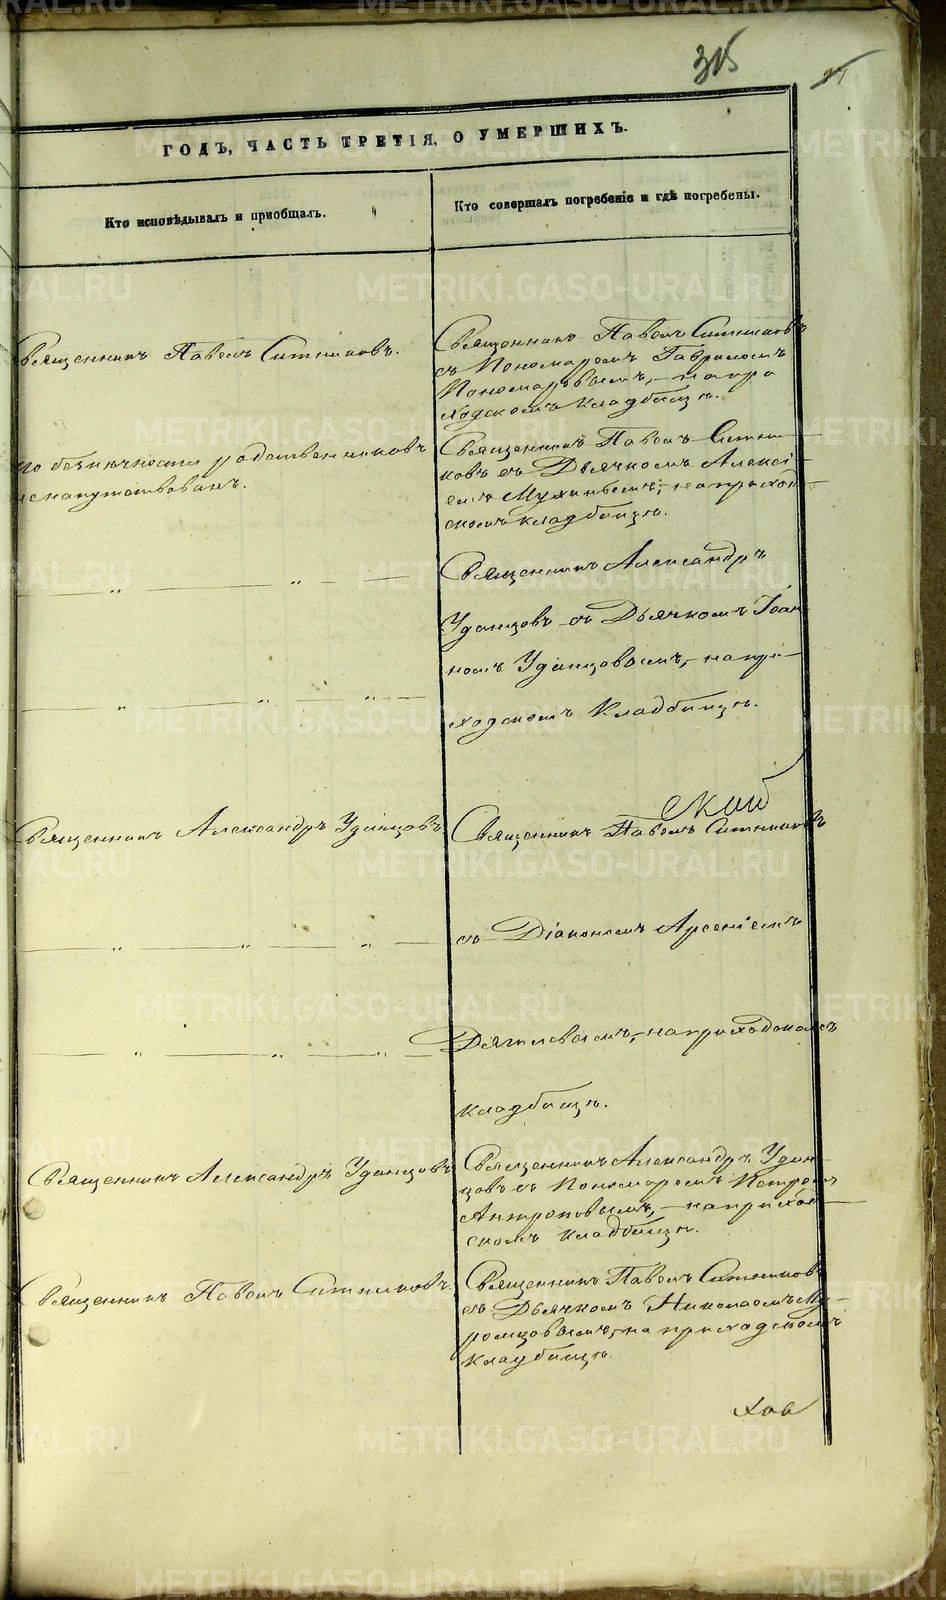 315
ГОДЪ, ЧАСТЬ ТРЕТІЯ, О УМЕРШИХЪ.
Кто исповѣдывалъ и пріобщалъ.
Кто совершалъ погребеніе и гдѣ погребены.
Священникъ Павелъ Ситниковъ.
Священникъ Павелъ Ситниковъ
съ Пономаремъ Гавриломъ
Пономаревымъ, – на при
ходскомъ кладбищѣ.
по безпечности родственниковъ
ненапутствованъ.
Священникъ Павелъ Ситни–
ковъ съ Дьячкомъ Алексѣ–
емъ Мухинымъ, – на приход–
скомъ кладбищѣ.
— „ — „ —
Священникъ Александръ
Удинцовъ съ Дьячкомъ Іоан
номъ Удинцовымъ, – на при–
— „ — „ — „ —
ходскомъ Кладбищѣ.
Священникъ Александръ Удинцовъ
Священникъ Павелъ Ситниковъ
— „ — „ — „ —
съ Діакономъ Арсеніемъ
— „ — „ — „ —
Дягилевымъ, – на приходскомъ
кладбищѣ.
Священникъ Александръ Удинцовъ
Священникъ Александръ Удин–
цовъ съ Пономаремъ Петромъ
Антроповымъ, – на приход–
скомъ кладбищѣ.
Священникъ Павелъ Ситниковъ.
Священникъ Павелъ Ситниковъ
съ Дьячкомъ Николаемъ Му–
ромцовымъ, на приходскомъ
кладбищѣ.
хов
METRIKI.GASO-URAL.RU